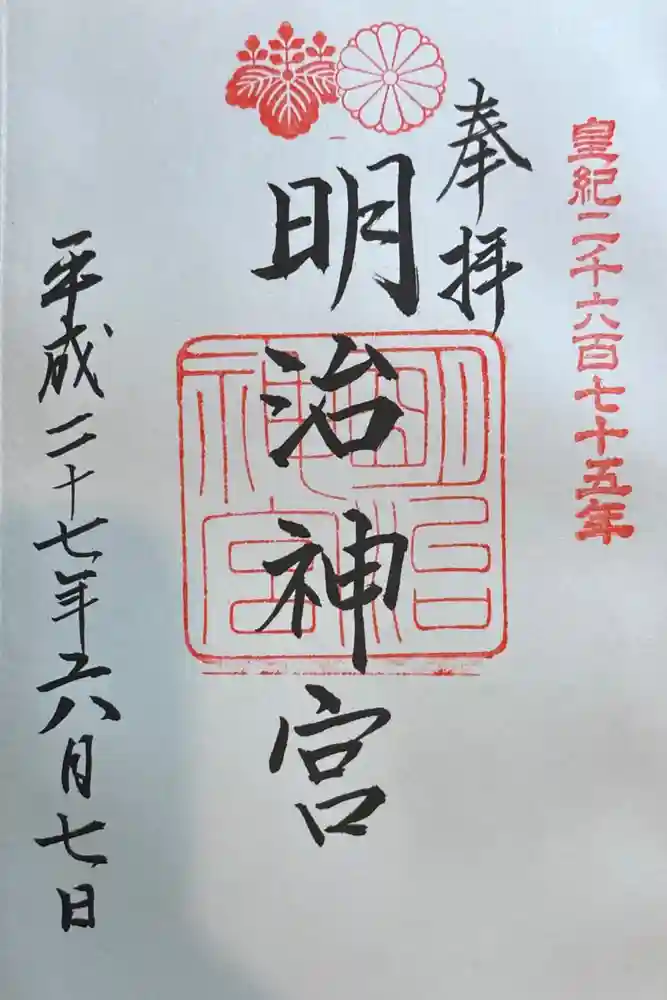 皇紀二千六百七十五年
奉拝
明治神宮
明治
神宮
平成二十七年六月七日